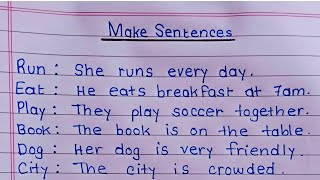 Make Sentences
Run : She runs every day.
Eat : He eats breakfast at 7am.
Play : They play soccer together.
Book : The book is on the table.
Dog : Her dog is very friendly.
City : The city is crowded.